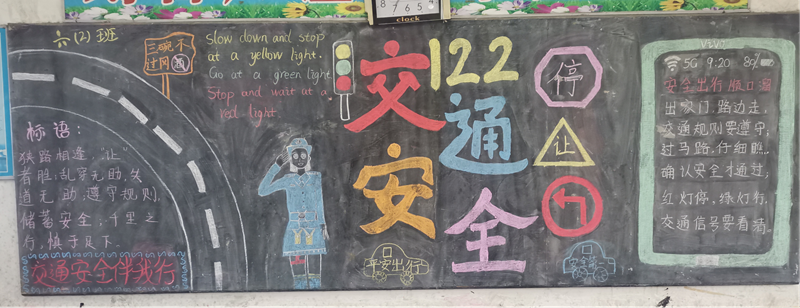 clock
六(2)班
三碗不
过冈
Slow down and stop
at a yellow light.
Go at a green light
Stop and wait at a
red light.
标语：
狭路相逢，“让”
者胜；乱穿无助，失
道无助；遵守规则，
储蓄安全；千里之
行，慎于足下。
交通安全伴我行
122
交通
安全
平安出行
安全第一
停
让
vivo
5G 9:20 80%
安全出行顺口溜
出家门，路边走，
交通规则要遵守；
过马路，仔细瞧，
确认安全才通过；
红灯停，绿灯行，
交通信号要看清。